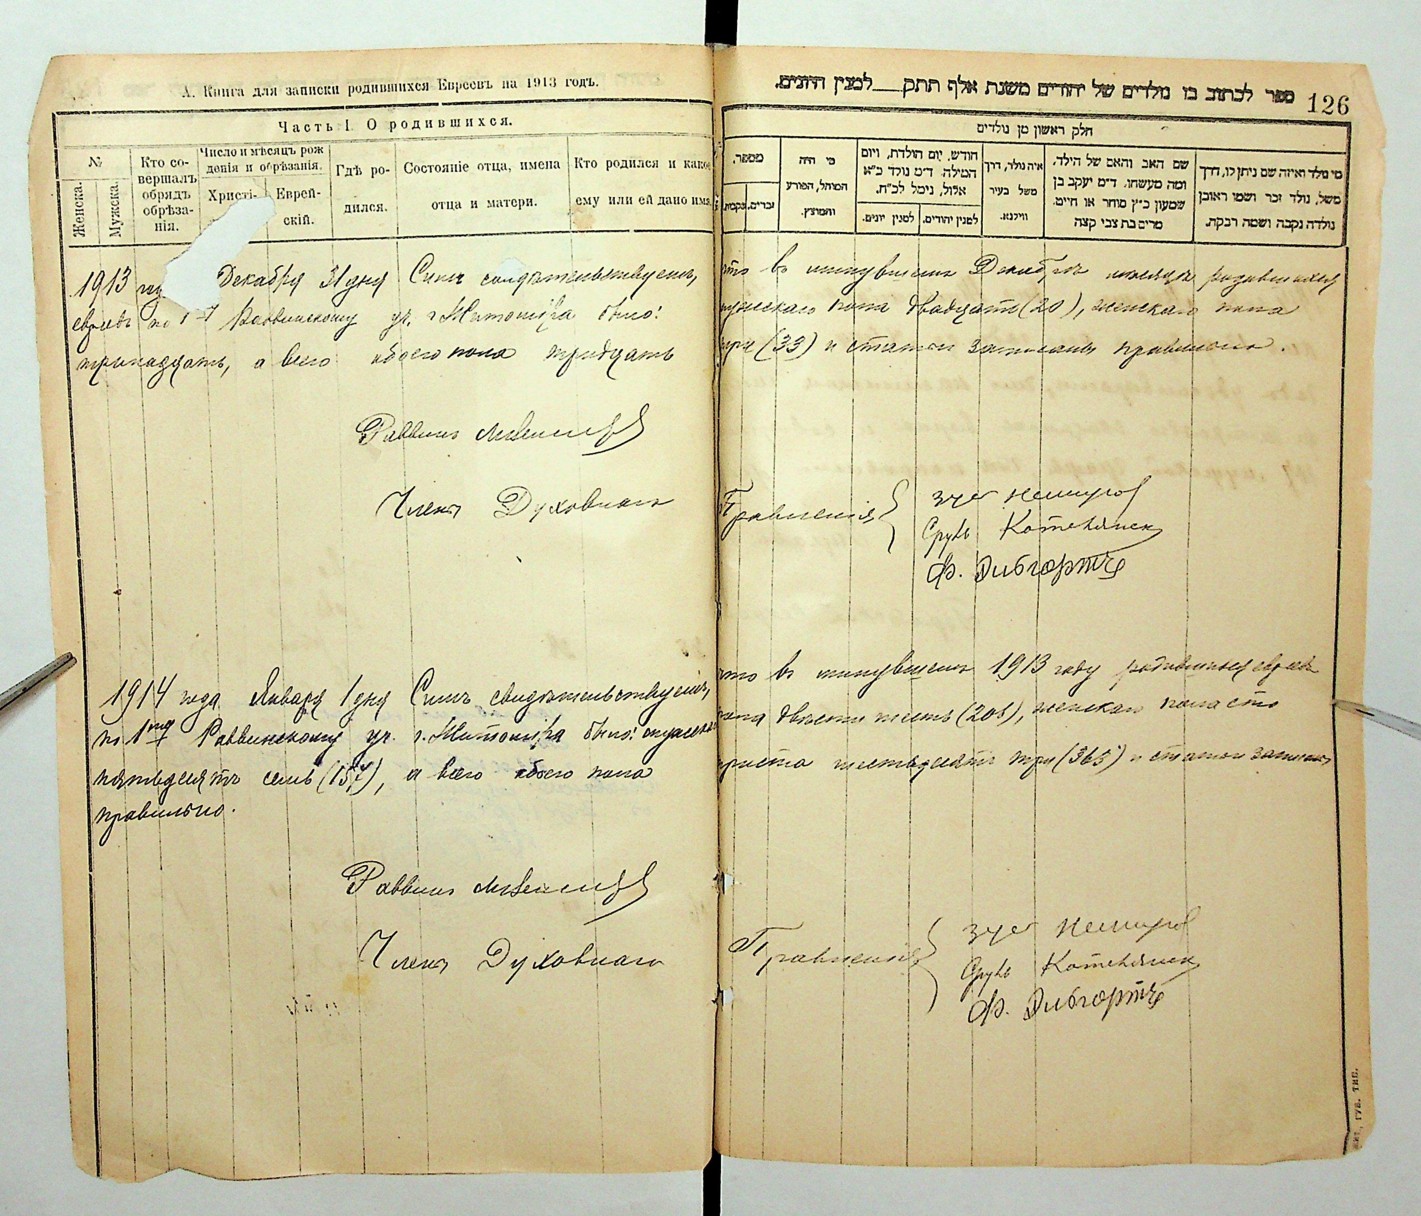 А. Книга для записки родившихся Евреевъ на 1913 годъ.
ספר לכתוב בו נולדים של יהודים משנת אלף תתק___ למנין היונים.
126
Часть I. О родившихся.
חלק ראשון מן נולדים
№
Женска.
Мужска.
Кто со-
вершалъ
обрядъ
обрѣза-
нія.
Число и мѣсяцъ рож
денія и обрѣзанія.
Христі-
Еврей-
скій.
Гдѣ ро-
дился.
Состояніе отца, имена
отца и матери.
Кто родился и како
ему или ей дано имя
מספר.
זכרים.
נקבות.
מי היה
המוהל, הפורע
והמוצץ.
חודש, יום הולדת, ויום
המילה. ד״מ נולד כ״א
אלול, נימל לכ״ח.
למנין יהודים.
למנין יונים.
איה נולד, דרך
משל בעיר
ווילנא.
שם האב והאם של הילד,
ומה מעשהו. ד״מ יעקב בן
שמעון כ״ץ סוחר או חייט.
מרים בת צבי קצה
מי נולד ואיזה שם ניתן לו, דרך
משל, נולד זכר ושמו ראובן
נולדה נקבה ושמה רבקה.
1913 Декабря 31 дня Симъ свидѣтельствуемъ, что въ минувшемъ Декабрѣ мѣсяцѣ родившихся
евреевъ по 1 Раввинскому уч. г. Житоміра было: мужскаго пола двадцать (20), женскаго пола
тринадцать, а всего обоего пола тридцать три (33) и статьи записаны правильно.
Раввинъ
Членъ Духовнаго Правленія
Зусь Немиров
Сруль Котелянск
Ф. Дивгортъ
1914 года Января 1 дня Симъ свидѣтельствуемъ, что въ минувшемъ 1913 году родившихся евреевъ
по 1му Раввинскому уч. г. Житоміра было: мужскаго пола двѣсти шесть (206), женскаго пола сто
пятьдесятъ семь (157), а всего обоего пола триста шестьдесятъ три (363) и статьи записаны
правильно.
Раввинъ
Членъ Духовнаго Правленія
Зусь Немиров
Сруль Котелянск
Ф. Дивгортъ
ГУБ. ТИП.